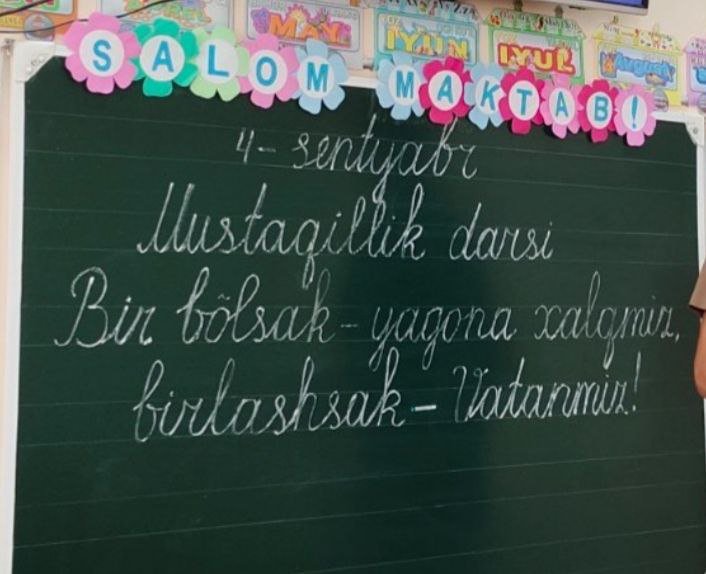 MAY
IYUN
IYUL
Avgust
SALOM MAKTAB!
4- sentyabr
Mustaqillik darsi
Bir bõlsak - yagona xalqmiz,
birlashsak - Vatanmiz!